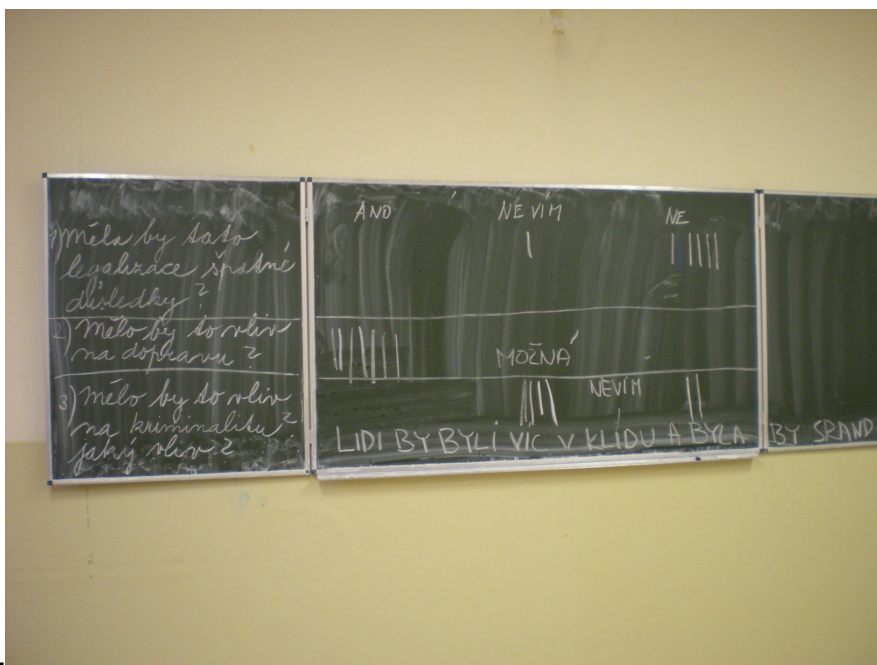 1) Měla by tato
legalizace špatné
důsledky?
2) Mělo by to vliv
na dopravu?
3) Mělo by to vliv
na kriminalitu?
jaký vliv?
ANO NEVÍM NE
MOŽNÁ
NEVÍM
LIDI BY BYLI VÍC V KLIDU A BYLA BY SRAND